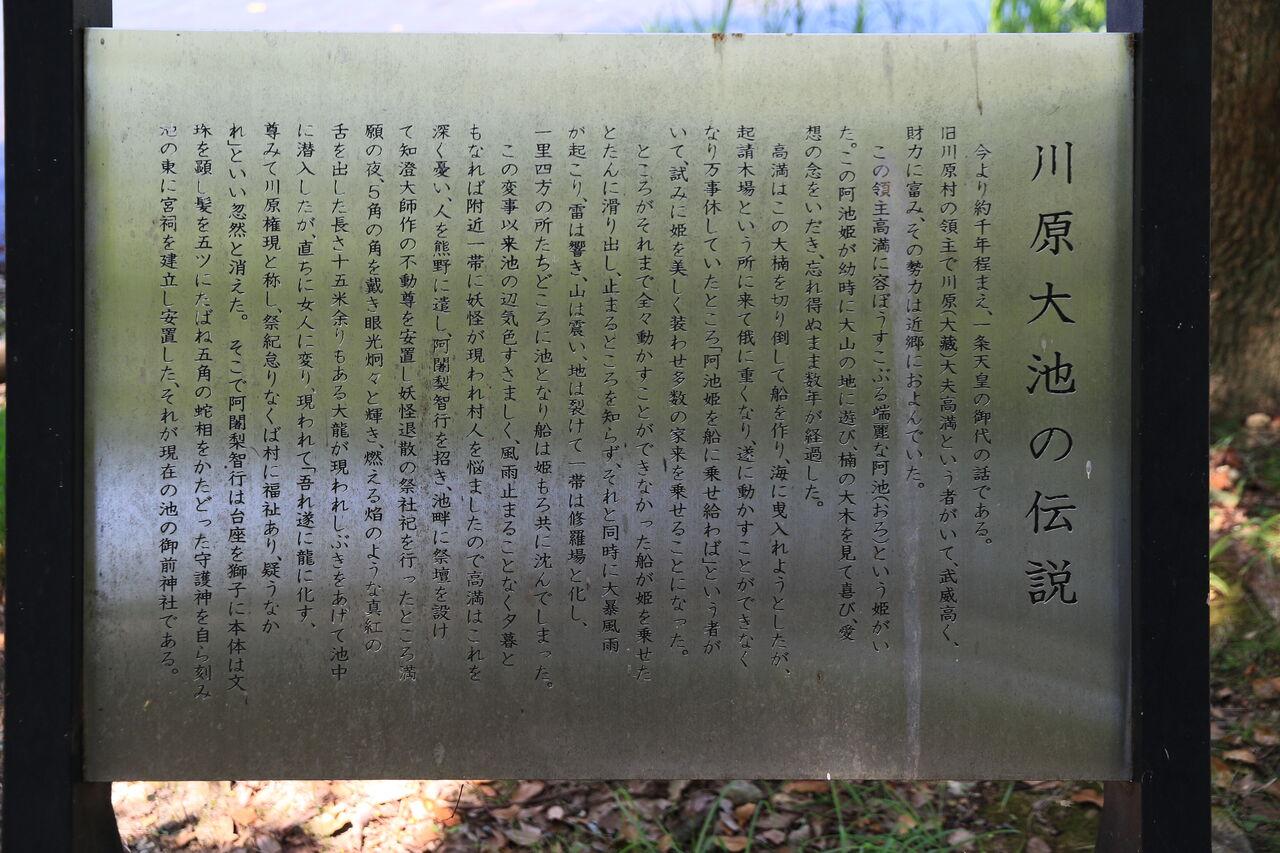 川原大池の伝説
今より約千年程まえ、一条天皇の御代の話である。
旧川原村の領主で川原(大蔵)大夫高満という者がいて、武威高く、
財力に富み、その勢力は近郷におよんでいた。
この領主高満に容ぼうすこぶる端麗な阿池(おろ)という姫がい
た。この阿池姫が幼時に大山の地に遊び、楠の大木を見て喜び、愛
想の念をいだき、忘れ得ぬまま数年が経過した。
高満はこの大楠を切り倒して船を作り、海に曳入れようとしたが、
起請木場という所に来て俄に重くなり、遂に動かすことができなく
なり万事休していたところ「阿池姫を船に乗せ給わば」という者が
いて、試みに姫を美しく装わせ多数の家来を乗せることになった。
ところがそれまで全々動かすことができなかった船が姫を乗せた
とたんに滑り出し、止まるところを知らず、それと同時に大暴風雨
が起こり、雷は響き、山は震い、地は裂けて一帯は修羅場と化し、
一里四方の所たちどころに池となり船は姫もろ共に沈んでしまった。
この変事以来池の辺気色すさまじく、風雨止まることなく夕暮と
もなれば附近一帯に妖怪が現われ村人を悩ましたので高満はこれを
深く憂い、人を熊野に遣し、阿闍梨智行を招き、池畔に祭壇を設け
て知澄大師作の不動尊を安置し妖怪退散の祭社祀を行ったところ満
願の夜、5角の角を戴き眼光炯々と輝き、燃える焰のような真紅の
舌を出した長さ十五米余りもある大龍が現われしぶきをあげて池中
に潜入したが、直ちに女人に変り、現われて「吾れ遂に龍に化す、
尊みて川原権現と称し、祭紀怠りなくば村に福祉あり、疑うなか
れ」といい忽然と消えた。 そこで阿闍梨智行は台座を獅子に本体は文
珠を顕し髪を五ツにたばね五角の蛇相をかたどった守護神を自ら刻み
池の東に宮祠を建立し安置した、それが現在の池の御前神社である。